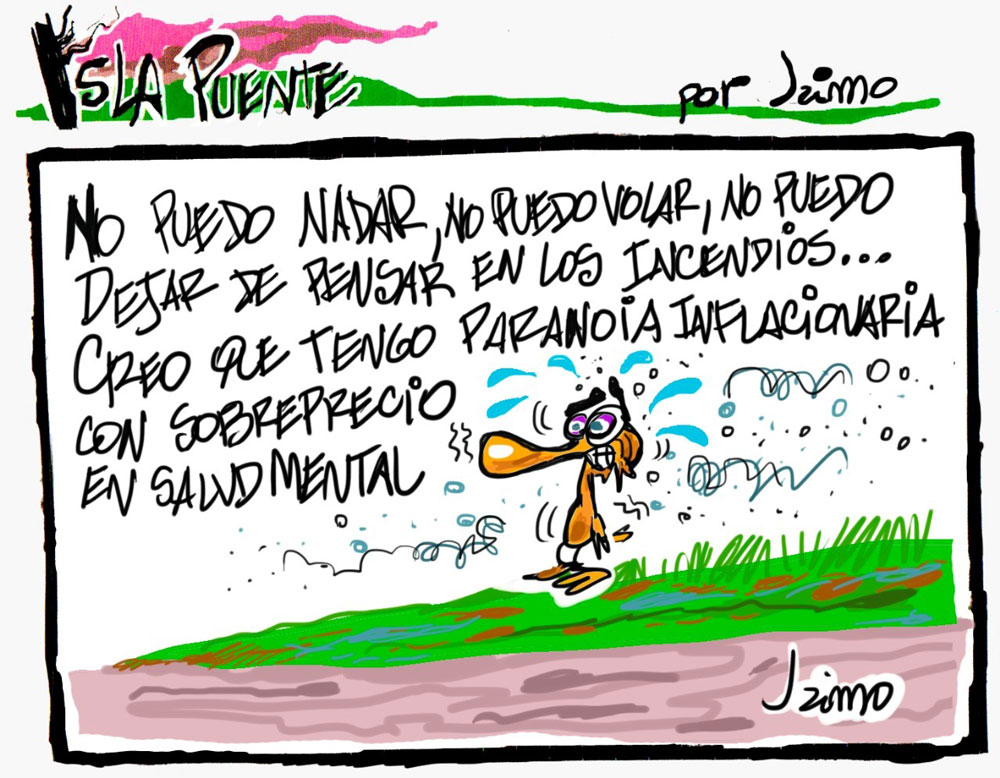 ISLA PUENTE
por Jaimo
NO PUEDO NADAR, NO PUEDO VOLAR, NO PUEDO
DEJAR DE PENSAR EN LOS INCENDIOS...
CREO QUE TENGO PARANOIA INFLACIONARIA
CON SOBREPRECIO
EN SALUD MENTAL
Jaimo